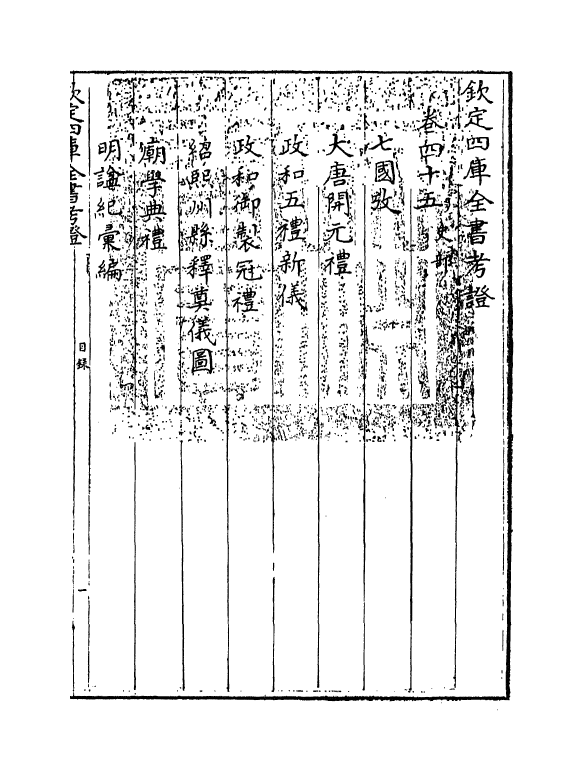 欽定四庫全書考證
卷四十五 史部
七國攷
大唐開元禮
政和五禮新儀
政和御製冠禮
紹熙州縣釋奠儀圖
廟學典禮
明諡紀彙編
欽定四庫全書考證
目録
一